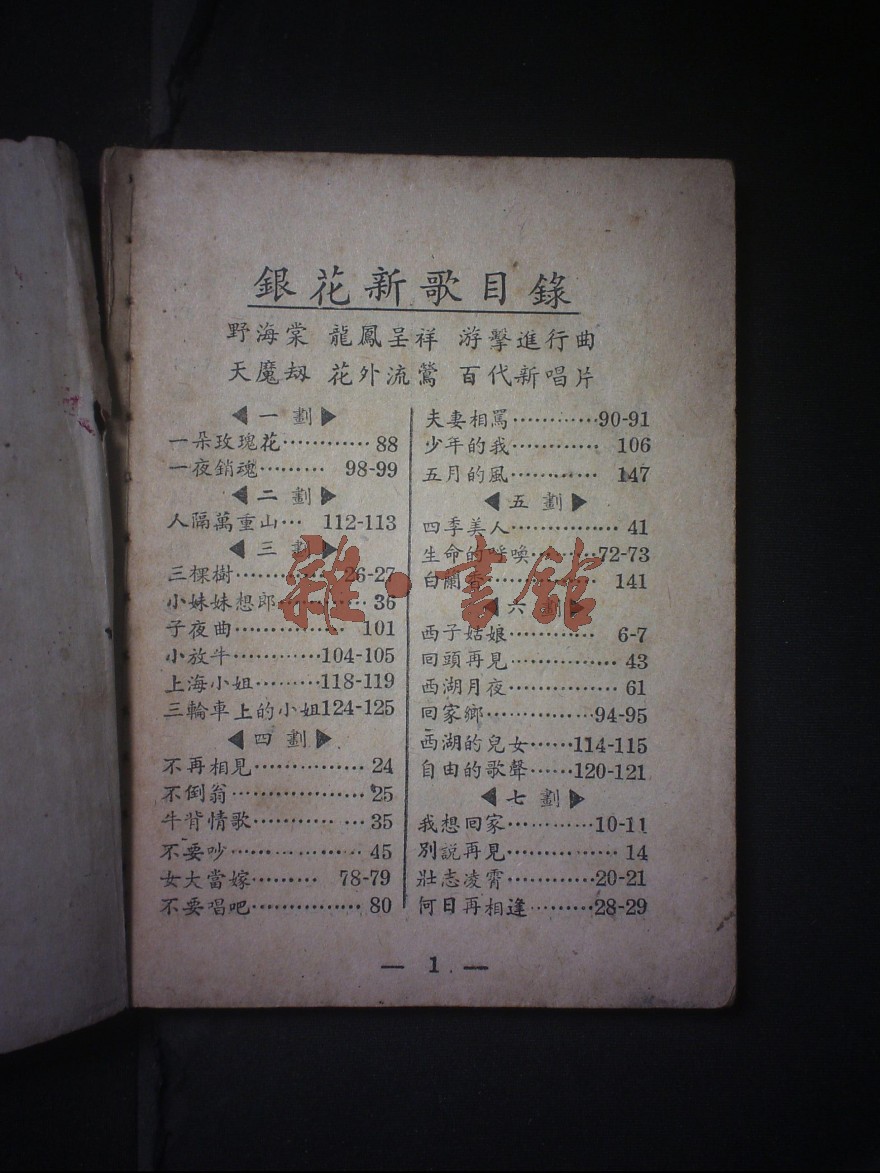 銀花新歌目錄
野海棠 龍鳳呈祥 游擊進行曲
天魔刼 花外流鶯 百代新唱片
◀一劃▶
一朵玫瑰花………… 88
一夜銷魂……… 98-99
◀二劃▶
人隔萬重山… 112-113
◀三劃▶
三棵樹………… 26-27
小妹妹想郎………… 36
子夜曲…………… 101
小放牛…………104-105
上海小姐………118-119
三輪車上的小姐124-125
◀四劃▶
不再相見…………… 24
不倒翁………………25
牛背情歌………… …35
不要吵……………… 45
女大當嫁……… 78-79
不要唱吧…………… 80
夫妻相罵…………90-91
少年的我………… 106
五月的風………… 147
◀五劃▶
四季美人…………… 41
生命的呼喚………72-73
白蘭香………… 141
◀六劃▶
西子姑娘………… 6-7
回頭再見…………… 43
西湖月夜…………… 61
回家鄉……………94-95
西湖的兒女……114-115
自由的歌聲……120-121
◀七劃▶
我想回家…………10-11
別說再見…………… 14
壯志凌霄…………20-21
何日再相逢………28-29
— 1 —
雜·書館